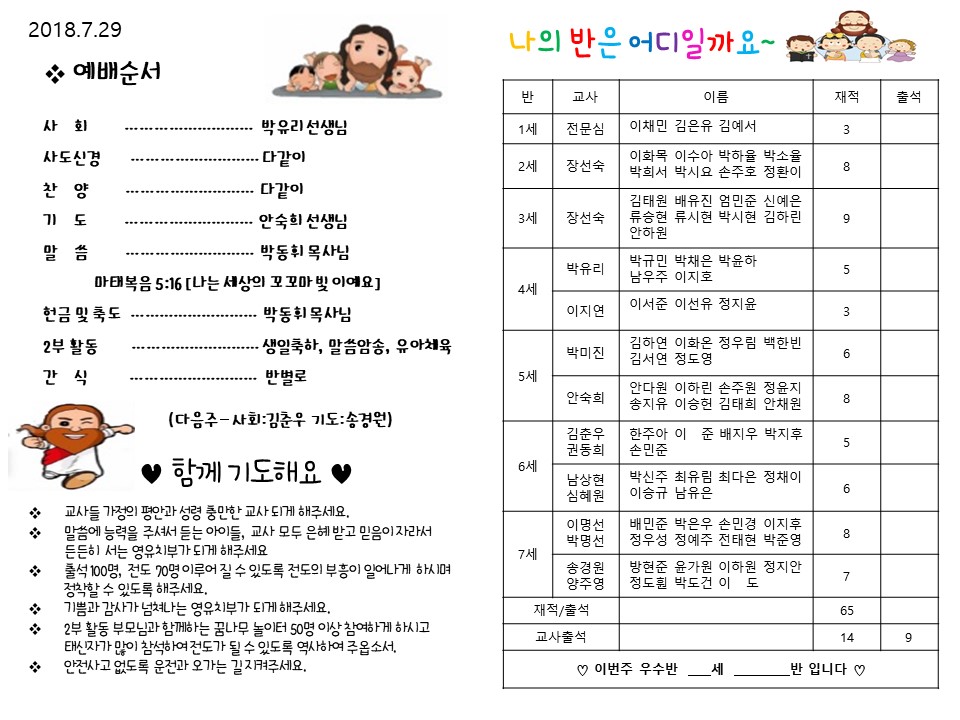 2018.7.29
❖ 예배순서
사 회 ………………………… 박유리선생님
사도신경 ………………………… 다같이
찬 양 ………………………… 다같이
기 도 ………………………… 안숙희 선생님
말 씀 ………………………… 박동휘 목사님
마태복음 5:16 [나는 세상의 꼬꼬마 빛 이예요]
헌금 및 축도 ………………………… 박동휘 목사님
2부 활동 ………………………… 생일축하, 말씀암송, 유아체육
간 식 ………………………… 반별로
(다음주-사회:김춘우 기도:송경원)
♥ 함께 기도해요 ♥
❖ 교사들 가정의 평안과 성령 충만한 교사 되게 해주세요.
❖ 말씀에 능력을 주셔서 듣는 아이들, 교사 모두 은혜 받고 믿음이 자라서
든든히 서는 영유치부가 되게 해주세요
❖ 출석 100명, 전도 70명 이루어 질 수 있도록 전도의 부흥이 일어나게 하시며
정착할 수 있도록 해주세요.
❖ 기쁨과 감사가 넘쳐나는 영유치부가 되게 해주세요.
❖ 2부 활동 부모님과 함께하는 꿈나무 놀이터 50명 이상 참여하게 하시고
태신자가 많이 참석하여 전도가 될 수 있도록 역사하여 주옵소서.
❖ 안전사고 없도록 운전과 오가는 길 지켜주세요.
나의 반은 어디일까요~
반 교사 이름 재적 출석
1세 전문심 이채민 김은유 김예서 3
2세 장선숙 이화목 이수아 박하율 박소율 8
박희서 박시요 손주호 정환이
3세 장선숙 김태원 배유진 엄민준 신예은 9
류승현 류시현 박시현 김하린
안하원
4세 박유리 박규민 박채은 박윤하 5
남우주 이지호
이지연 이서준 이선유 정지윤 3
5세 박미진 김하연 이화온 정우림 백한빈 6
김서연 정도영
안숙희 안다원 이하린 손주원 정윤지 8
송지유 이승헌 김태희 안채원
6세 김춘우 권동희 한주아 이 준 배지우 박지후 5
손민준
남상현 심혜원 박신주 최유림 최다은 정채이 6
이승규 남유은
7세 이명선 박명선 배민준 박은우 손민경 이지후 8
정우성 정예주 전태현 박준영
송경원 양주영 방현준 윤가원 이하원 정지안 7
정도훤 박도건 이 도
재적/출석 65
교사출석 14 9
♡ 이번주 우수반 ___세 ________반 입니다 ♡